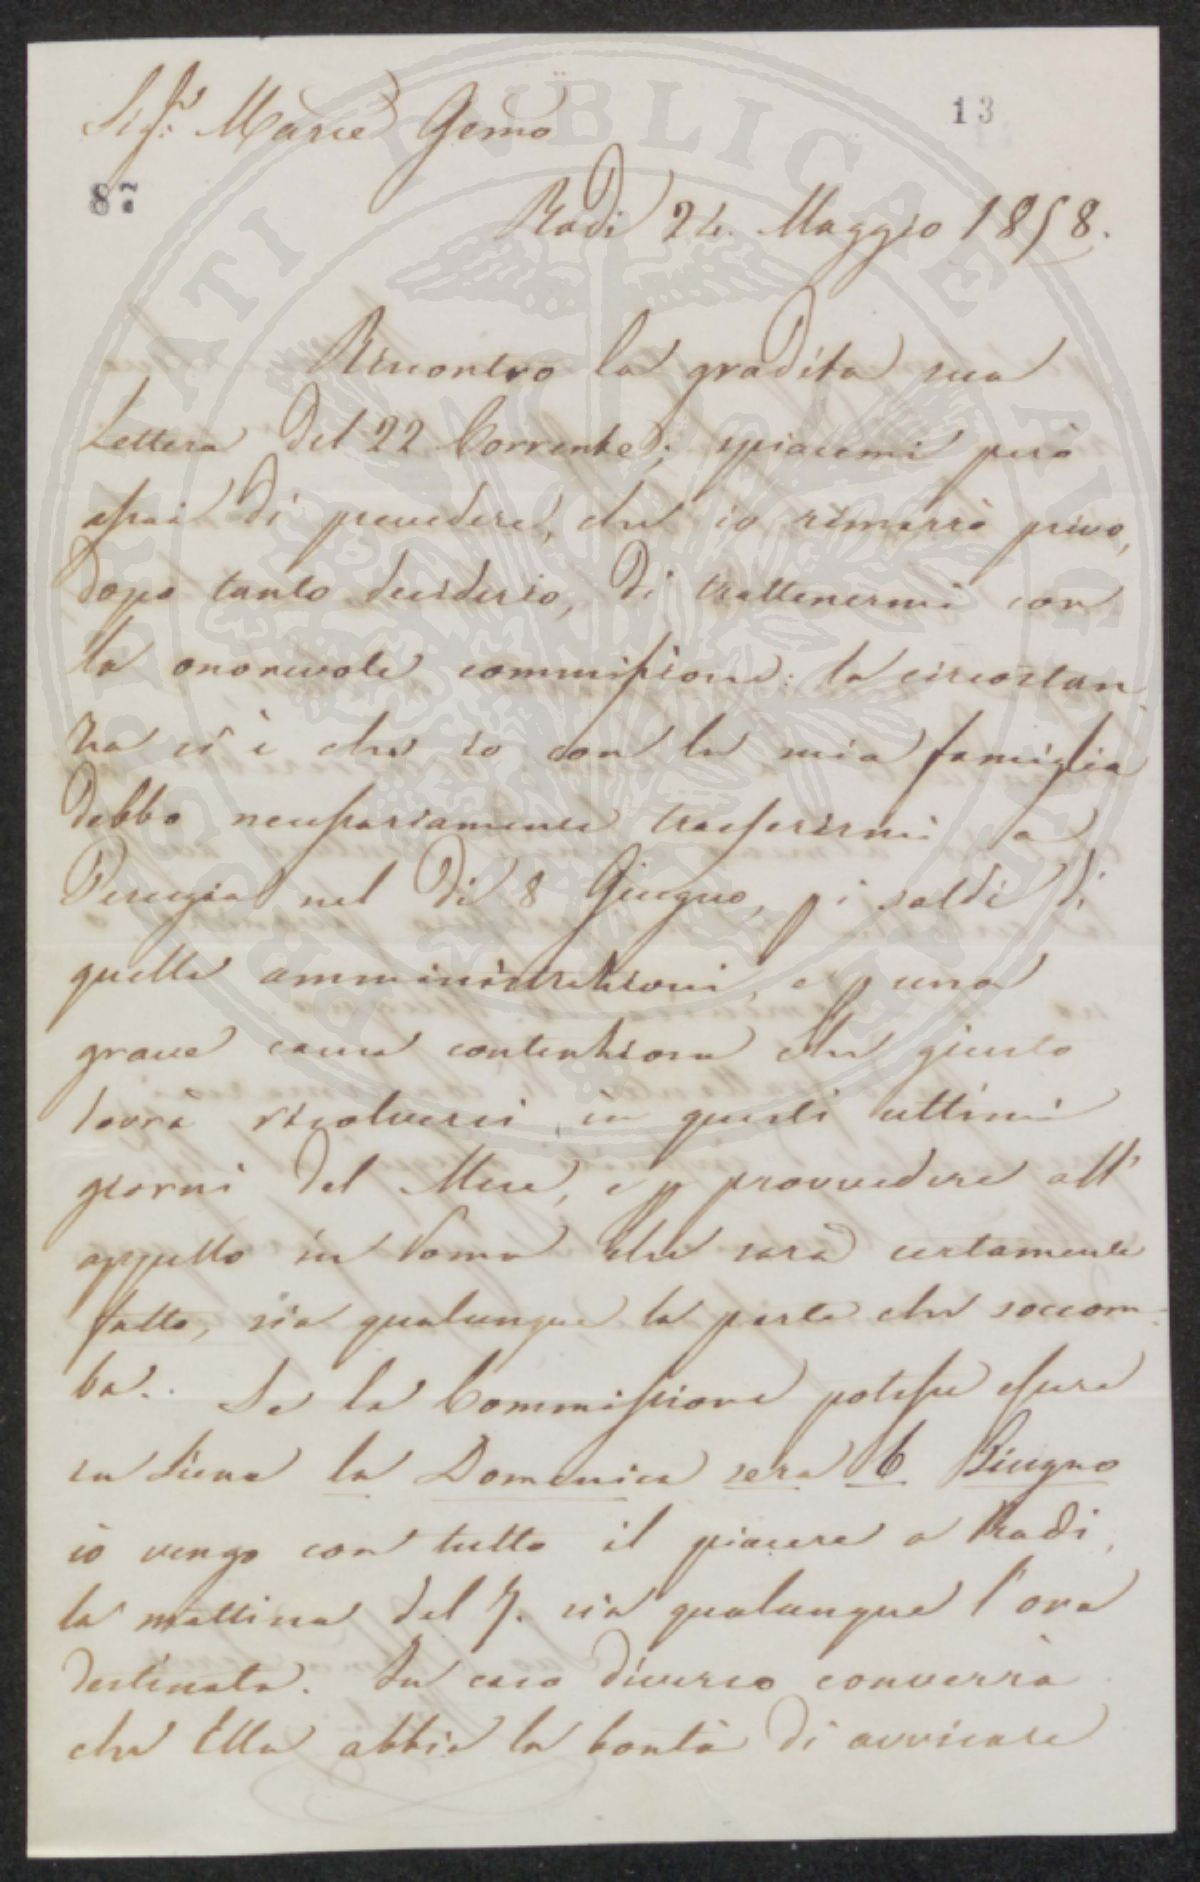 Sigr. Marce Gemo
13
8.
Radi 24. Maggio 1858.
Riscontro la gradita sua
Lettera del 22 Corrente; spiacemi però
assai di prevedere, che io rimarrò privo,
dopo tanto desiderio, di trattenermi con
la onorevole commissione: la circostan
za si è che io con la mia famiglia
debbo necessariamente trasferirmi a
Perugia nel dì 8 Giugno, p i saldi di
quella amministrazioni, e p una
grave causa contenziosa che giusto
dovrà risolversi in questi ultimi
giorni del Mese, e p provvedere all'
appello in Roma che sarà certamente
fatto, sia qualunque la parte che soccom
ba. Se la Commissione potesse essere
in Siena la Domenica sera 6 Giugno
io vengo con tutto il piacere a Radi,
la mattina del 7. sia qualunque l'ora
destinata. In caso diverso converrà
che Ella abbia la bontà di avvisare